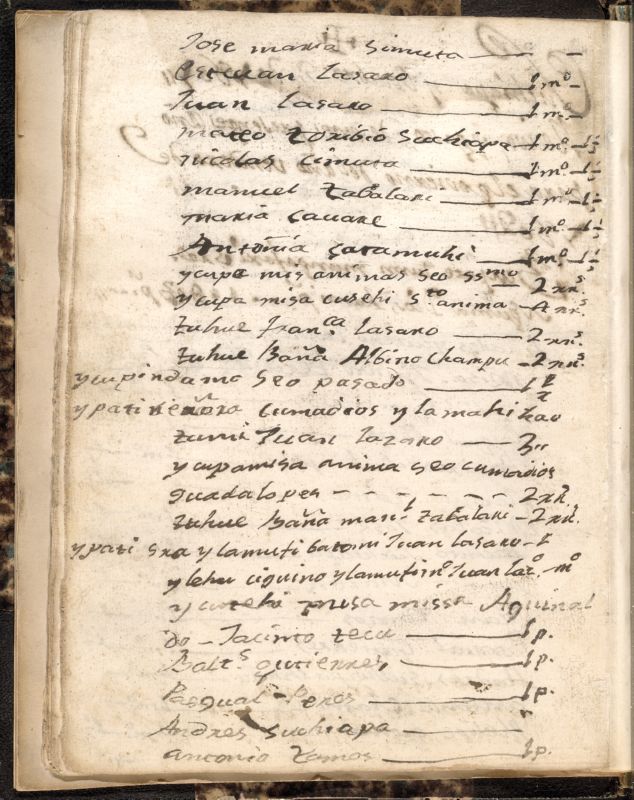 Jose maria Simuta — –
Estevan Lasaro — 1 mº –
Juan Lasaro — 1 mº –
mateo toribio Suchiapa — 1 mº –
nicolas Cimuta — 1 mº –
manuel Zabalari — 1 mº –
maria Cauare — 1 mº –
Antoñia Catamuhi — 1 mº –
ycupa mis animas seo ssmo — 2xrs.
ycupa misa cusehi sto anima –
tuhue Franca. Lasaro — 2xrs.
tuhue Baña Albino Champu – 2xrs.
ycupindamo Seo pasado — 1
y pati señora cumadios y lamahi
tumi Juan Lazaro —
ycupamisa anima seo cumadios
guadalopes – – – – – – – 2xr.
tuhue Baña Zabalari – 2xr.
y pati sra y lamuti batomi Juan Lasaro –
y lehu ciguino y lamuti Juan Lazo. mº
y curehi misa missa Aguinal
do – Jacinto teca — 1 p.
Balts gutierres, — 1 p.
Pasqual Peros — 1 p.
Andres Suchiapa —
antonio Ramos — 1 p.